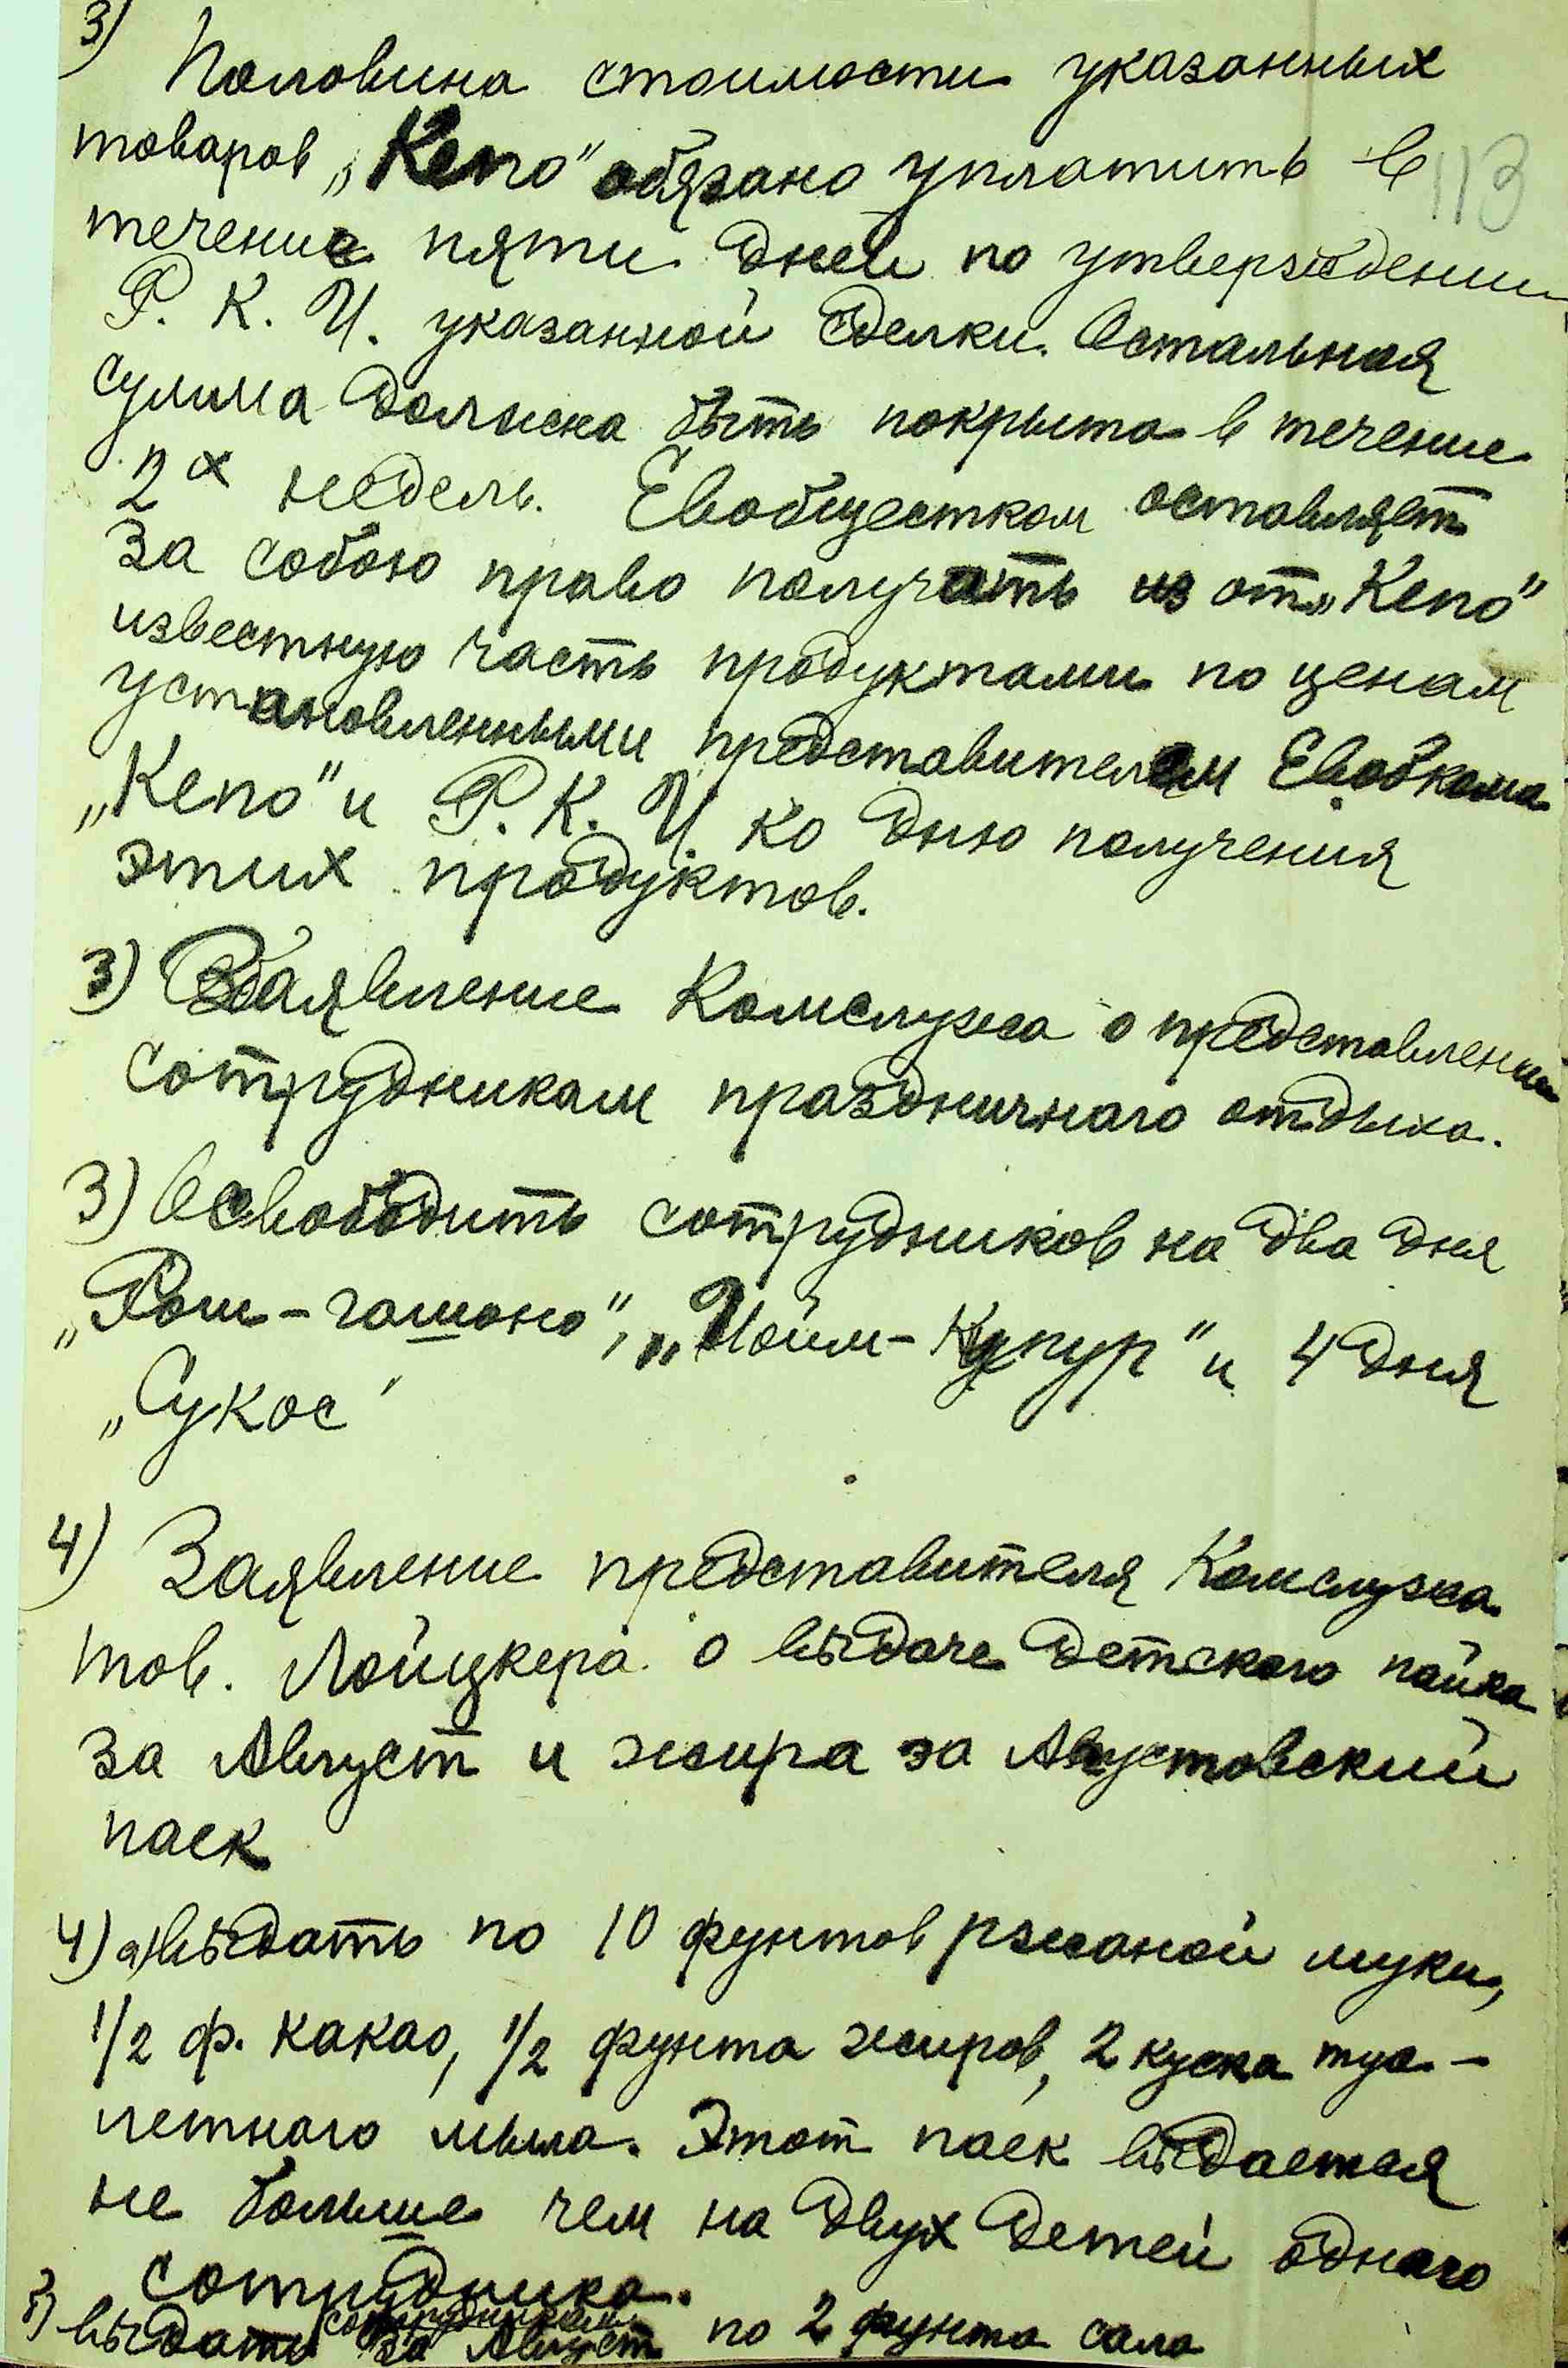 3)
Половина стоимости указанных
товаров „Кепо" обязано уплатить в
113
течение пяти дней по утверждении
Р. К. И. указанной сделки. Остальная
сумма должна быть покрыта в течение
2х недель. Евобщестком оставляет
за собою право получать из от „Кепо"
известную часть продуктами по ценам
установленными представителем Евобкома
„Кепо" и Р. К. И. ко дню получения
этих продуктов.
3) Заявление Комслужа о представлении
сотрудникам праздничного отдыха.
3) Освободить сотрудников на два дня
„Рош-гашоно", „Иойм-Кипур" и 4 дня
„Сукос"
4) Заявление представителя Комслужа
тов. Лойцкера о выдаче детского пайка
за Август и жира за Августовский
паек
4) а) выдать по 10 фунтов ржаной муки,
1/2 ф. какао, 1/2 фунта жиров, 2 куска туа-
летного мыла. Этот паек выдается
не больше чем на двух детей одного
сотрудника.
сотрудникам
выдать за Август по 2 фунта сала